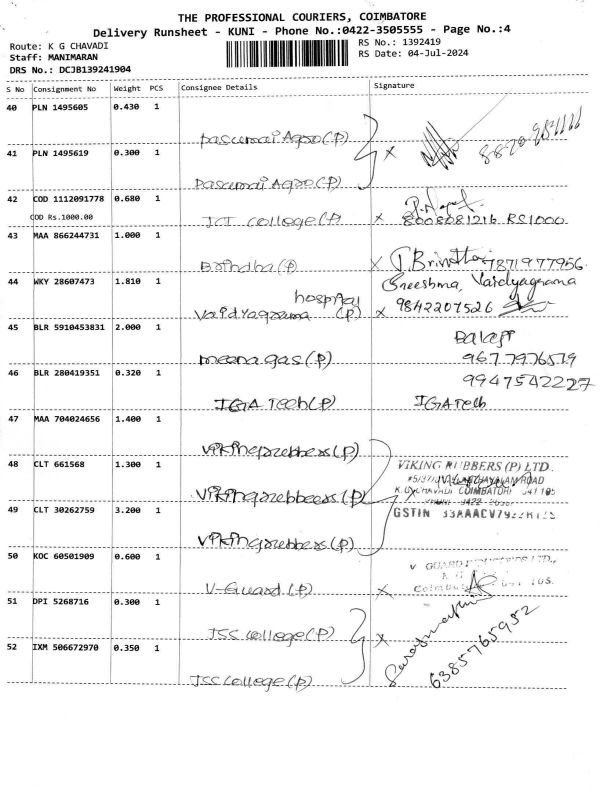 THE PROFESSIONAL COURIERS, COIMBATORE
Delivery Runsheet - KUNI - Phone No.:0422-3505555 - Page No.:4
Route: K G CHAVADI
RS No.: 1392419
Staff: MANIMARAN
RS Date: 04-Jul-2024
DRS No.: DCJB139241904
S No Consignment No Weight PCS Consignee Details Signature
40 PLN 1495605 0.430 1
Pasumai Agro (P)
41 PLN 1495619 0.300 1
Pasumai Agro (P)
42 COD 1112091778 0.680 1
COD Rs.1000.00 JCT College (P) x 8008081216 RS1000
43 MAA 866244731 1.000 1
Brindha (P) x J. Brindha 7871977956
44 WKY 28607473 1.810 1
Sreeshma, Vaidyagrama
hospital
Vaidyagrama (P) x 9842207526
45 BLR 5910453831 2.000 1
Balaji
meena gas (P) 9677976519
46 BLR 280419351 0.320 1
9947542227
IGA Tech (P) IGA Tech
47 MAA 704024656 1.400 1
Viking rubbers (P)
48 CLT 661568 1.300 1
VIKING RUBBERS (P) LTD.
Viking rubbers (P)
K.G. CHAVADI COIMBATORE 641 105
49 CLT 30262759 3.200 1
GSTIN
Viking rubbers (P)
50 KOC 60501909 0.600 1
V GUARD INDUSTRIES LTD.,
V-Guard (P) x
51 DPI 5268716 0.300 1
JSS College (P) x
52 IXM 506672970 0.350 1
6385765952
JSS College (P)